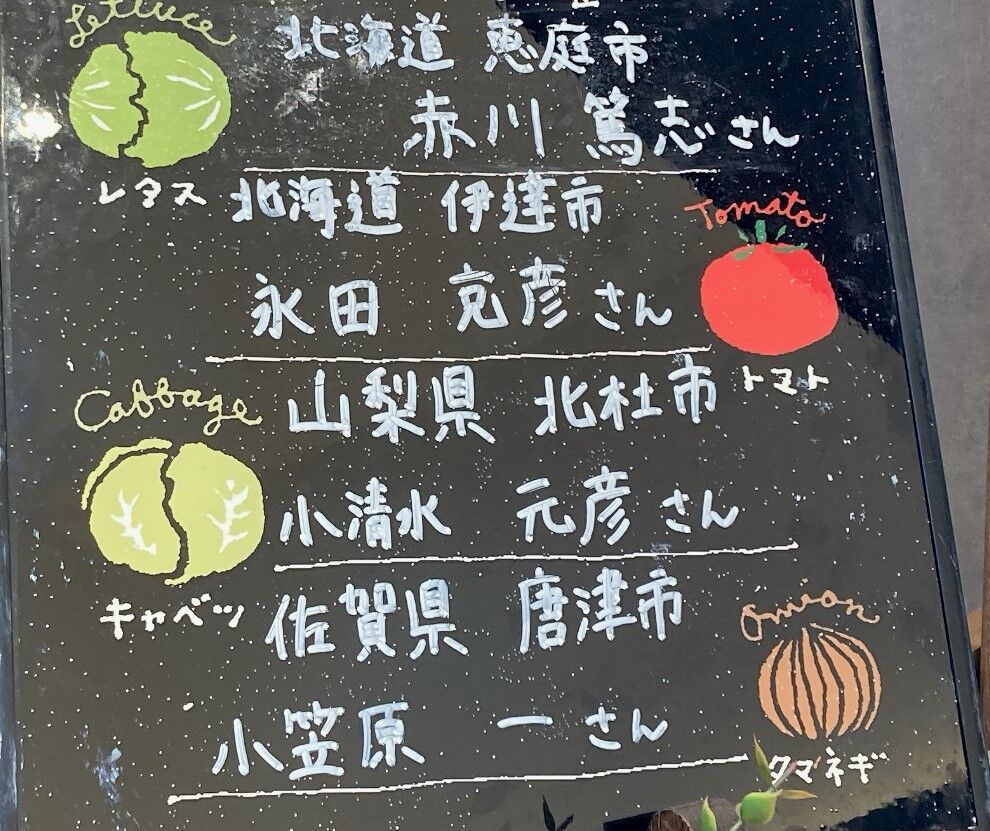 Lettuce
北海道 恵庭市
赤川 篤志さん
レタス
北海道 伊達市
Tomato
永田 克彦さん
トマト
Cabbage
山梨県 北杜市
小清水 元彦さん
キャベツ
佐賀県 唐津市
Onion
小笠原 一さん
タマネギ